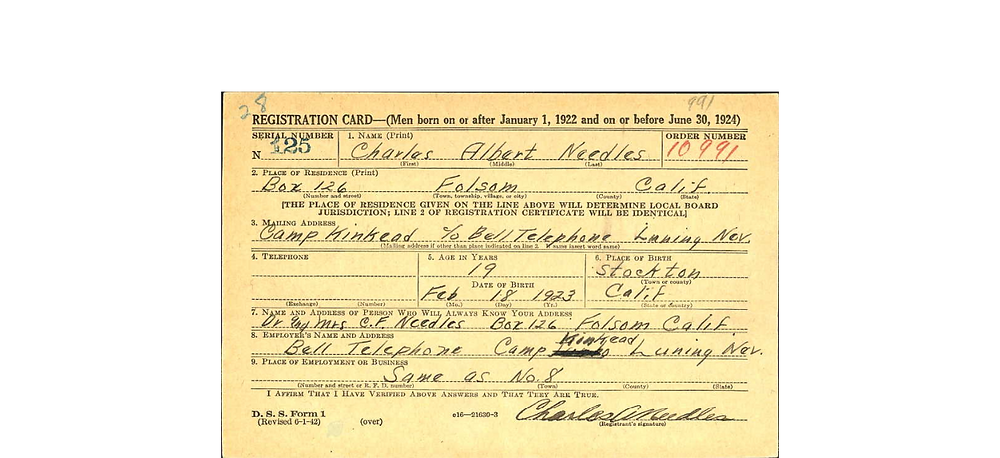 28
991
REGISTRATION CARD—(Men born on or after January 1, 1922 and on or before June 30, 1924)
SERIAL NUMBER 1. NAME (Print) ORDER NUMBER
N 125 Charles Albert Needles 10991
(First) (Middle) (Last)
2. PLACE OF RESIDENCE (Print)
Box 126 Folsom Calif.
(Number and street) (Town, township, village, or city) (County) (State)
[THE PLACE OF RESIDENCE GIVEN ON THE LINE ABOVE WILL DETERMINE LOCAL BOARD
JURISDICTION; LINE 2 OF REGISTRATION CERTIFICATE WILL BE IDENTICAL]
3. MAILING ADDRESS
Camp Kinkead c/o Bell Telephone Luning Nev.
(Mailing address if other than place indicated on line 2. If same insert word same)
4. TELEPHONE 5. AGE IN YEARS 6. PLACE OF BIRTH
19 Stockton
(Town or county)
DATE OF BIRTH
Feb 18 1923 Calif
(Exchange) (Number) (Mo.) (Day) (Yr.) (State or country)
7. NAME AND ADDRESS OF PERSON WHO WILL ALWAYS KNOW YOUR ADDRESS
Dr. Mrs C.F. Needles Box 126 Folsom Calif.
8. EMPLOYER'S NAME AND ADDRESS
Bell Telephone Camp Kinkead Luning Nev.
9. PLACE OF EMPLOYMENT OR BUSINESS
Same as No. 8
(Number and street or R. F. D. number) (Town) (County) (State)
I AFFIRM THAT I HAVE VERIFIED ABOVE ANSWERS AND THAT THEY ARE TRUE.
D. S. S. Form 1
(Revised 6-1-42) (over) c16—21630-3 Charles A Needles
(Registrant's signature)